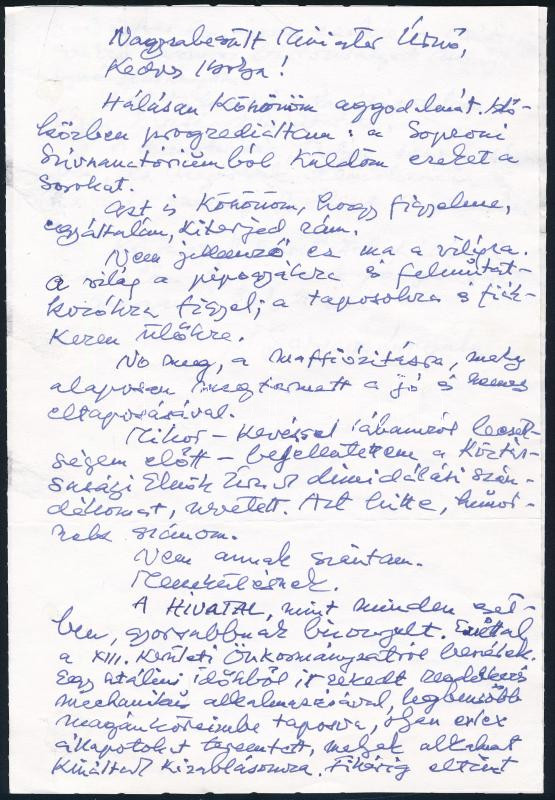 Nagyrabecsült Miniszter Úrnő,
Kedves Ibolya!
Hálásan köszönöm aggodalmát. Idő-
közben progrediáltam: a Soproni
Szívszanatóriumból küldöm ezeket a
sorokat.
Azt is köszönöm, hogy figyelme,
egyáltalán, kiterjed rám.
Nem jellemző ez ma a világra.
A világ a pipogyákra és felmutat-
kozókra figyel; a taposókra és fiá-
keren ülőkre.
No meg, a maffiózitásra, mely
alaposan megtermett a jó és nemes
eltaposásával.
Mikor – kevéssel lábamról leeset-
ségem előtt – bejelentettem a Köztár-
sasági Elnök Úrnak dimidálási szán-
dékomat, nevetett. Azt hitte, humor-
nak szánom.
Nem annak szántam.
Menekülésnek.
A HIVATAL, mint minden eset-
ben, gyorsabbnak bizonyult. Ezúttal
a XIII. Kerületi Önkormányzatról beszélek.
Egy sztálini időkből itt rekedt rendelkezés
mechanikus alkalmazásával, legbensőbb
magánköreimbe taposva, olyan
állapotokat teremtett, melyek alkalmat
kínáltak kirablásomra. eltűnt